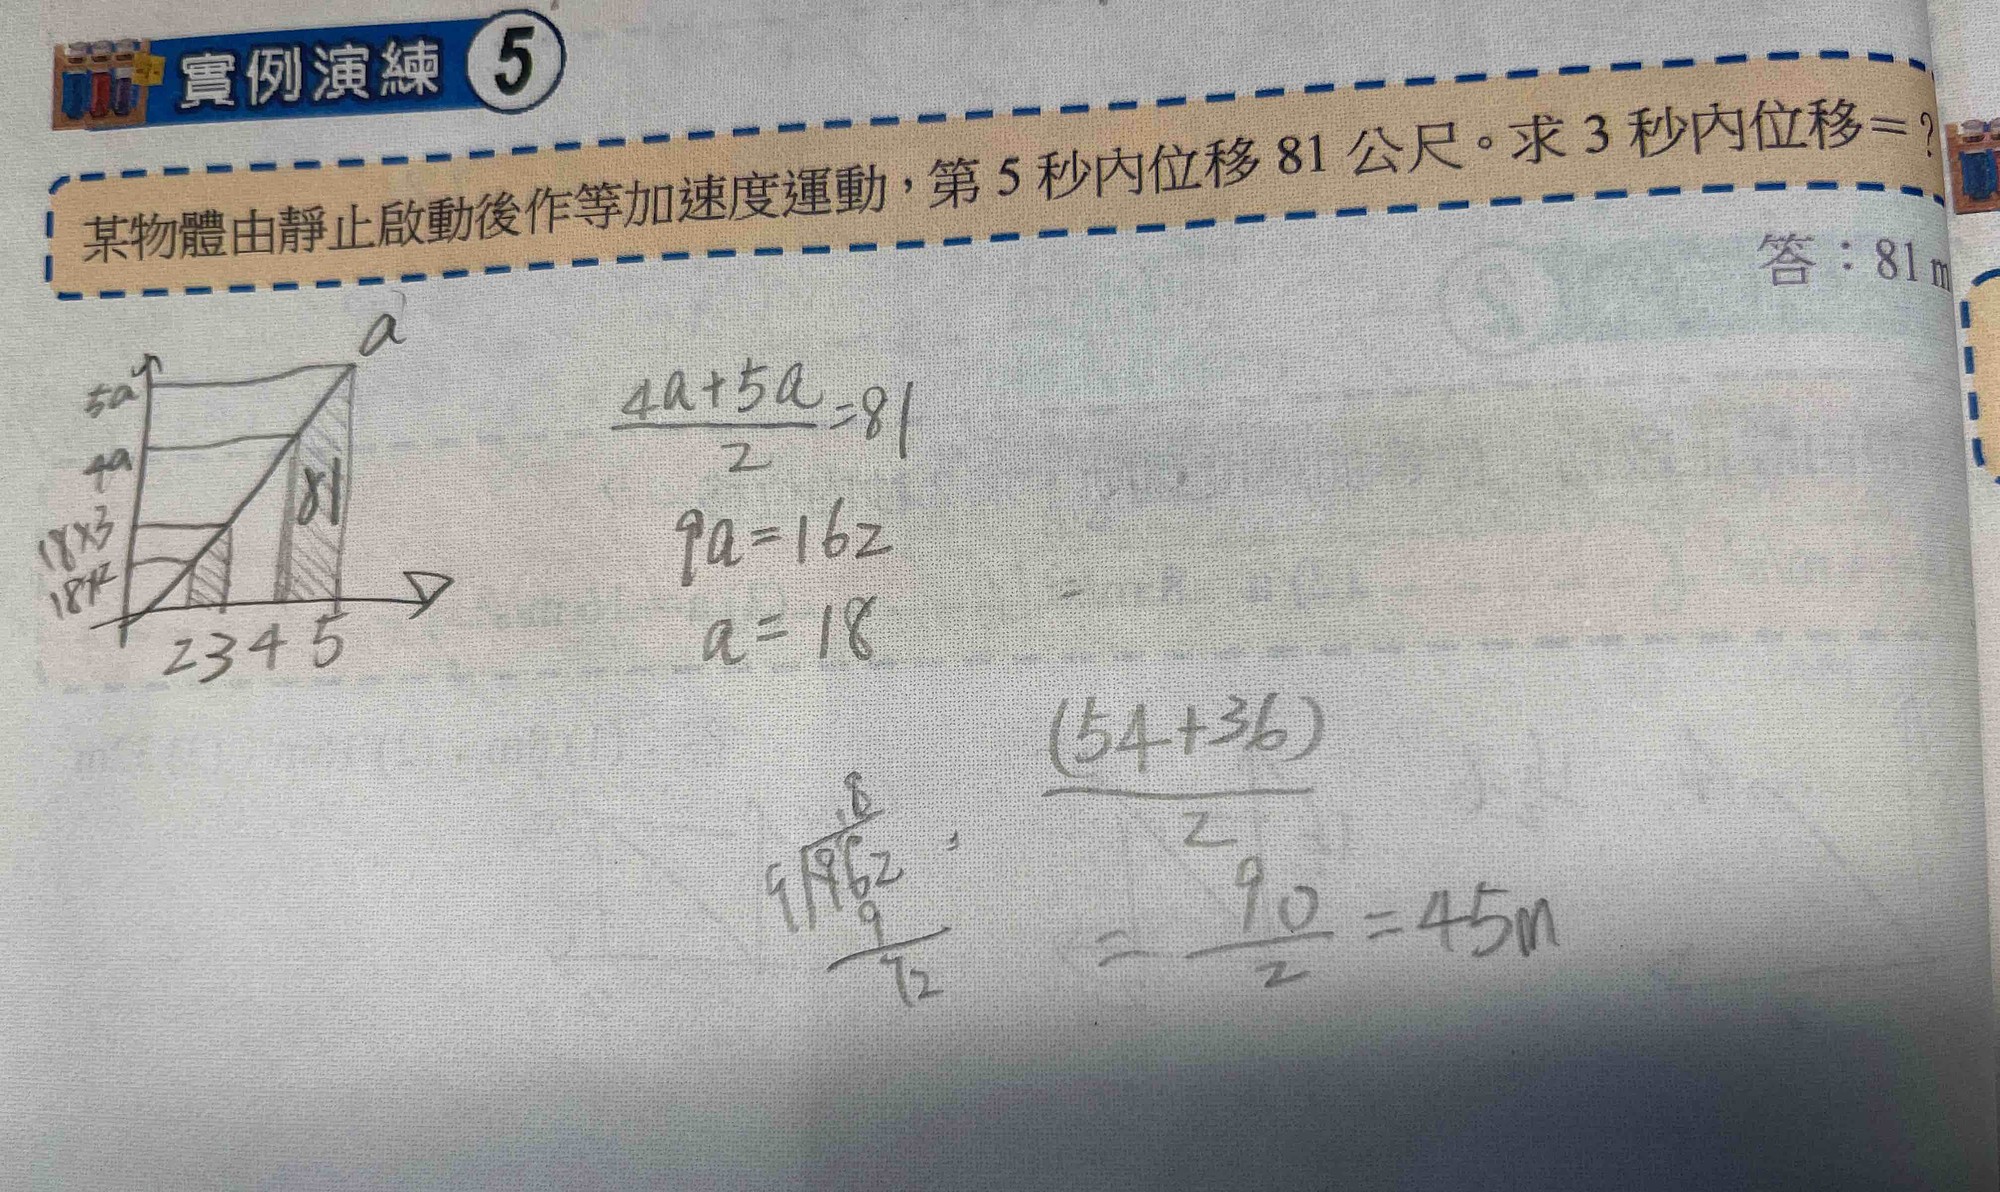 實例演練 5
某物體由靜止啟動後作等加速度運動，第 5 秒內位移 81 公尺。求 3 秒內位移＝?
答：81 m
a
5a
4a
18×3
18×2
81
2 3 4 5
4a+5a
2
=81
9a=162
a=18
(54+36)
2
18
9 162
9
72
= 90
2
=45m